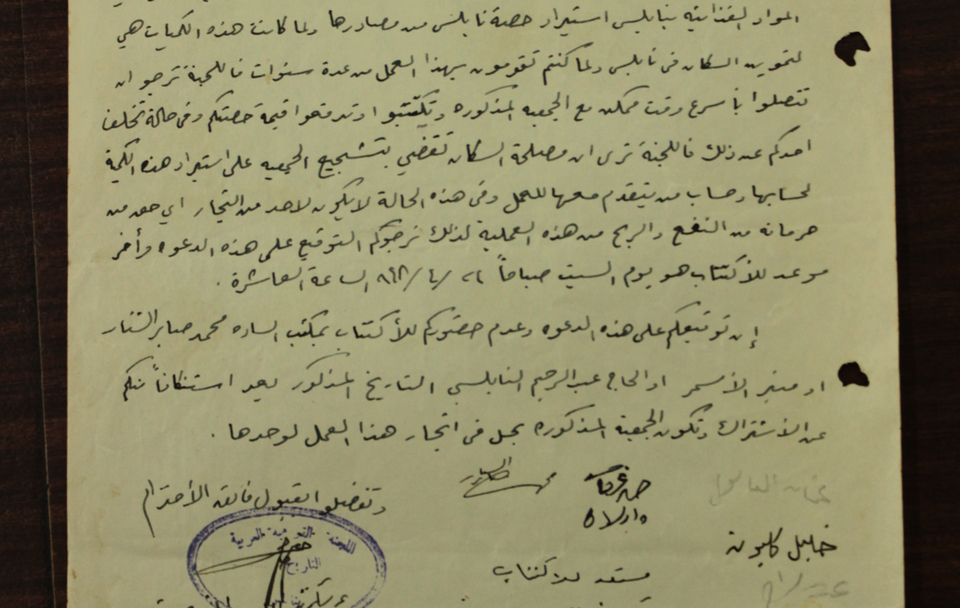 المواد الغذائيه بنابلس استيراد حصة نابلس من مصادرها ولما كانت هذه الكميات هي
لتموين السكان في نابلس ولما كنتم تقومون بهذا العمل من عدة سنوات فاللجنة ترجو ان
تتصلوا بأسرع وقت ممكن مع الجمعيه المذكوره وتكتتبوا وتدفعوا قيمة حصتكم وفي حالة تخلف
احدكم عن ذلك فاللجنة ترى ان مصلحة السكان تقضي بتشجيع الجمعيه على استيراد هذه الكمية
لحسابها وحساب من يتقدم معها للعمل وفي هذه الحالة لا يكون لاحد من التجار اي حق من
حرمانه من النفع والربح من هذه العملية لذلك نرجوكم التوقيع على هذه الدعوه وأخر
موعد للأكتتاب هو يوم السبت صباحاً الساعة العاشرة .
إن توقيعكم على هذه الدعوه وعدم حضوركم للأكتتاب بمكتب الساده محمد صابر النشار
او منير الأسمر او الحاج عبد الرحيم النابلسي التاريخ المذكور يعد استنكافاً منكم
عن الأشتراك وتكون الجمعية المذكوره بحل في اتجار هذا العمل لوحدها .
وتفضلوا بقبول فائق الأحترام
اللجنة القومية العربية
خليل كلبونة
مستعد للاكتتاب